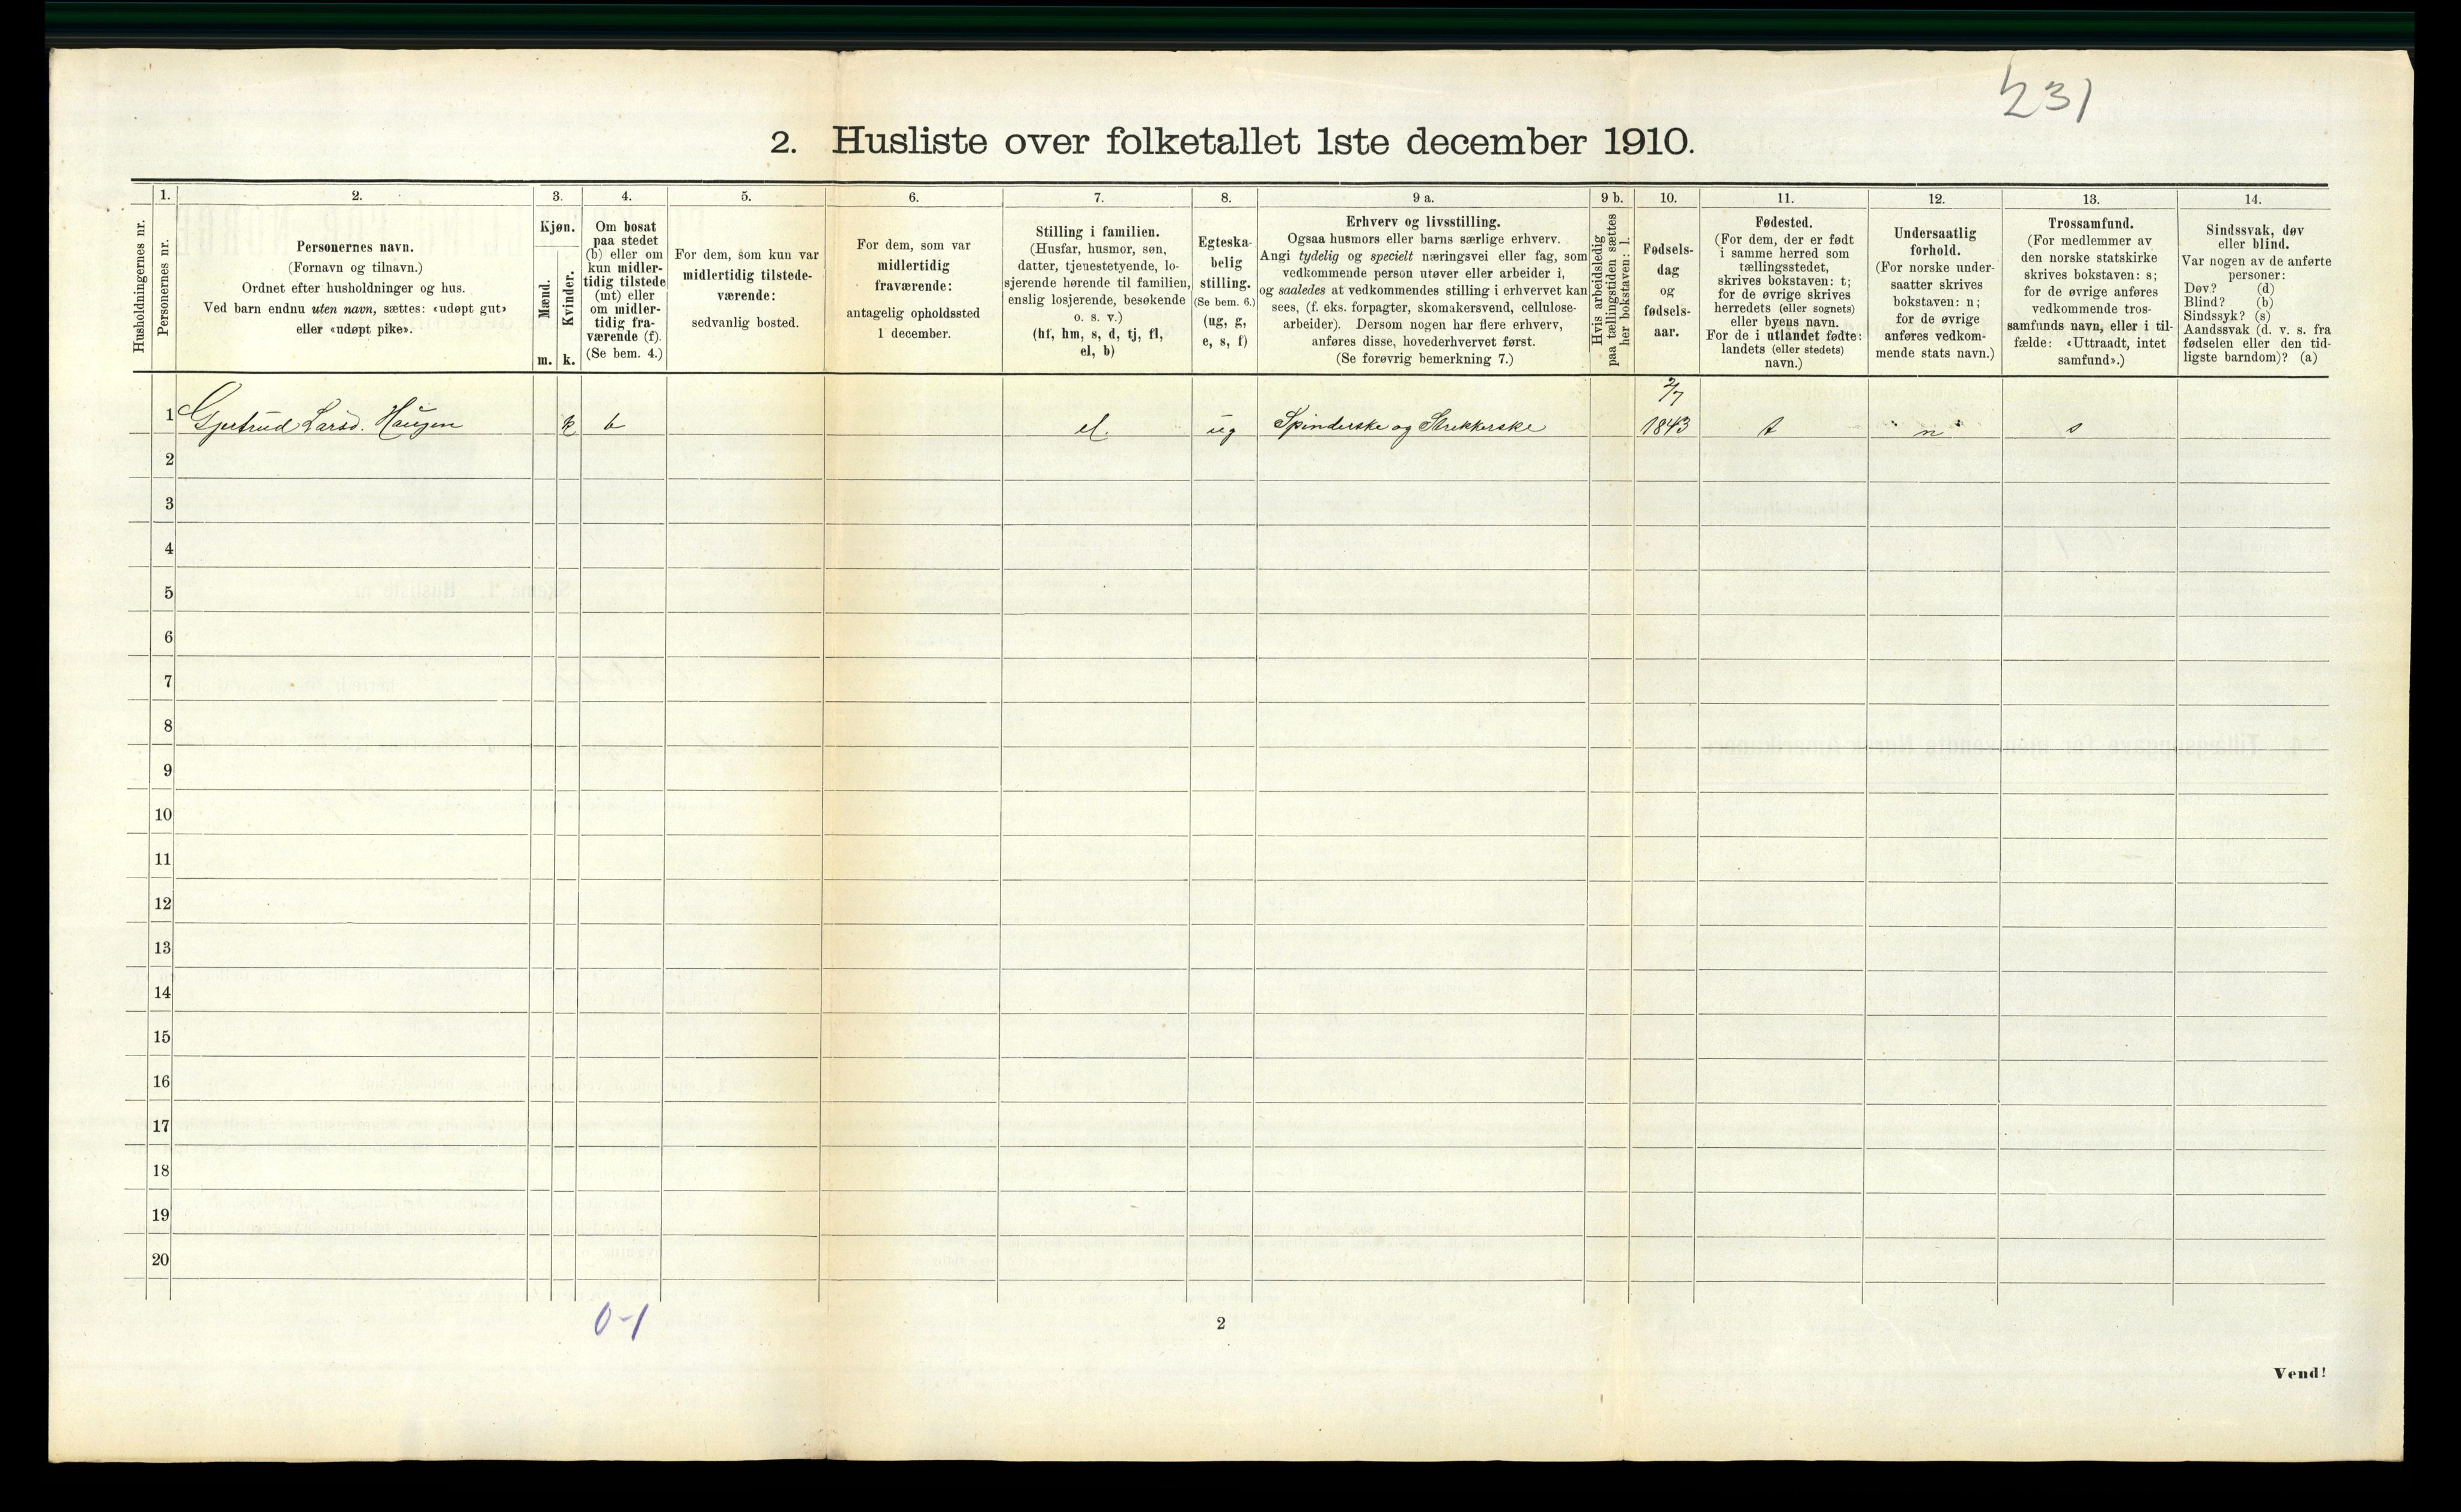 231
2. Husliste over folketallet 1ste december 1910.
Husholdningernes nr.
1.
Personernes nr.
2.
Personernes navn.
(Fornavn og tilnavn.)
Ordnet efter husholdninger og hus.
Ved barn endnu uten navn, sættes: «udøpt gut»
eller «udøpt pike».
3.
Kjøn.
Mænd.
m.
Kvinder.
k.
4.
Om bosat
paa stedet
(b) eller om
kun midler-
tidig tilstede
(mt) eller
om midler-
tidig fra-
værende (f).
(Se bem. 4.)
5.
For dem, som kun var
midlertidig tilstede-
værende:
sedvanlig bosted.
6.
For dem, som var
midlertidig
fraværende:
antagelig opholdssted
1 december.
7.
Stilling i familien.
(Husfar, husmor, søn,
datter, tjenestetyende, lo-
sjerende hørende til familien,
enslig losjerende, besøkende
o. s. v.)
(hf, hm, s, d, tj, fl,
el, b)
8.
Egteska-
belig
stilling.
(Se bem. 6.)
(ug, g,
e, s, f)
9 a.
Erhverv og livsstilling.
Ogsaa husmors eller barns særlige erhverv.
Angi tydelig og specielt næringsvei eller fag, som
vedkommende person utøver eller arbeider i,
og saaledes at vedkommendes stilling i erhvervet kan
sees, (f. eks. forpagter, skomakersvend, cellulose-
arbeider). Dersom nogen har flere erhverv,
anføres disse, hovederhvervet først.
(Se forøvrig bemerkning 7.)
9 b.
Hvis arbeidsledig
paa tællingstiden sættes
her bokstaven: l.
10.
Fødsels-
dag
og
fødsels-
aar.
11.
Fødested.
(For dem, der er født
i samme herred som
tællingsstedet,
skrives bokstaven: t;
for de øvrige skrives
herredets (eller sognets)
eller byens navn.
For de i utlandet fødte:
landets (eller stedets)
navn.)
12.
Undersaatlig
forhold.
(For norske under-
saatter skrives
bokstaven: n;
for de øvrige
anføres vedkom-
mende stats navn.)
13.
Trossamfund.
(For medlemmer av
den norske statskirke
skrives bokstaven: s;
for de øvrige anføres
vedkommende tros-
samfunds navn, eller i til-
fælde: «Uttraadt, intet
samfund».)
14.
Sindssvak, døv
eller blind.
Var nogen av de anførte
personer:
Døv? (d)
Blind? (b)
Sindssyk? (s)
Aandssvak (d. v. s. fra
fødselen eller den tid-
ligste barndom)? (a)
2/7
1 Gjertrud Larsd. Haugen k b el. ug Spinderske og Strekkerske 1843 t n s
2
3
4
5
6
7
8
9
10
11
12
13
14
15
16
17
18
19
20
0-1
2
Vend!